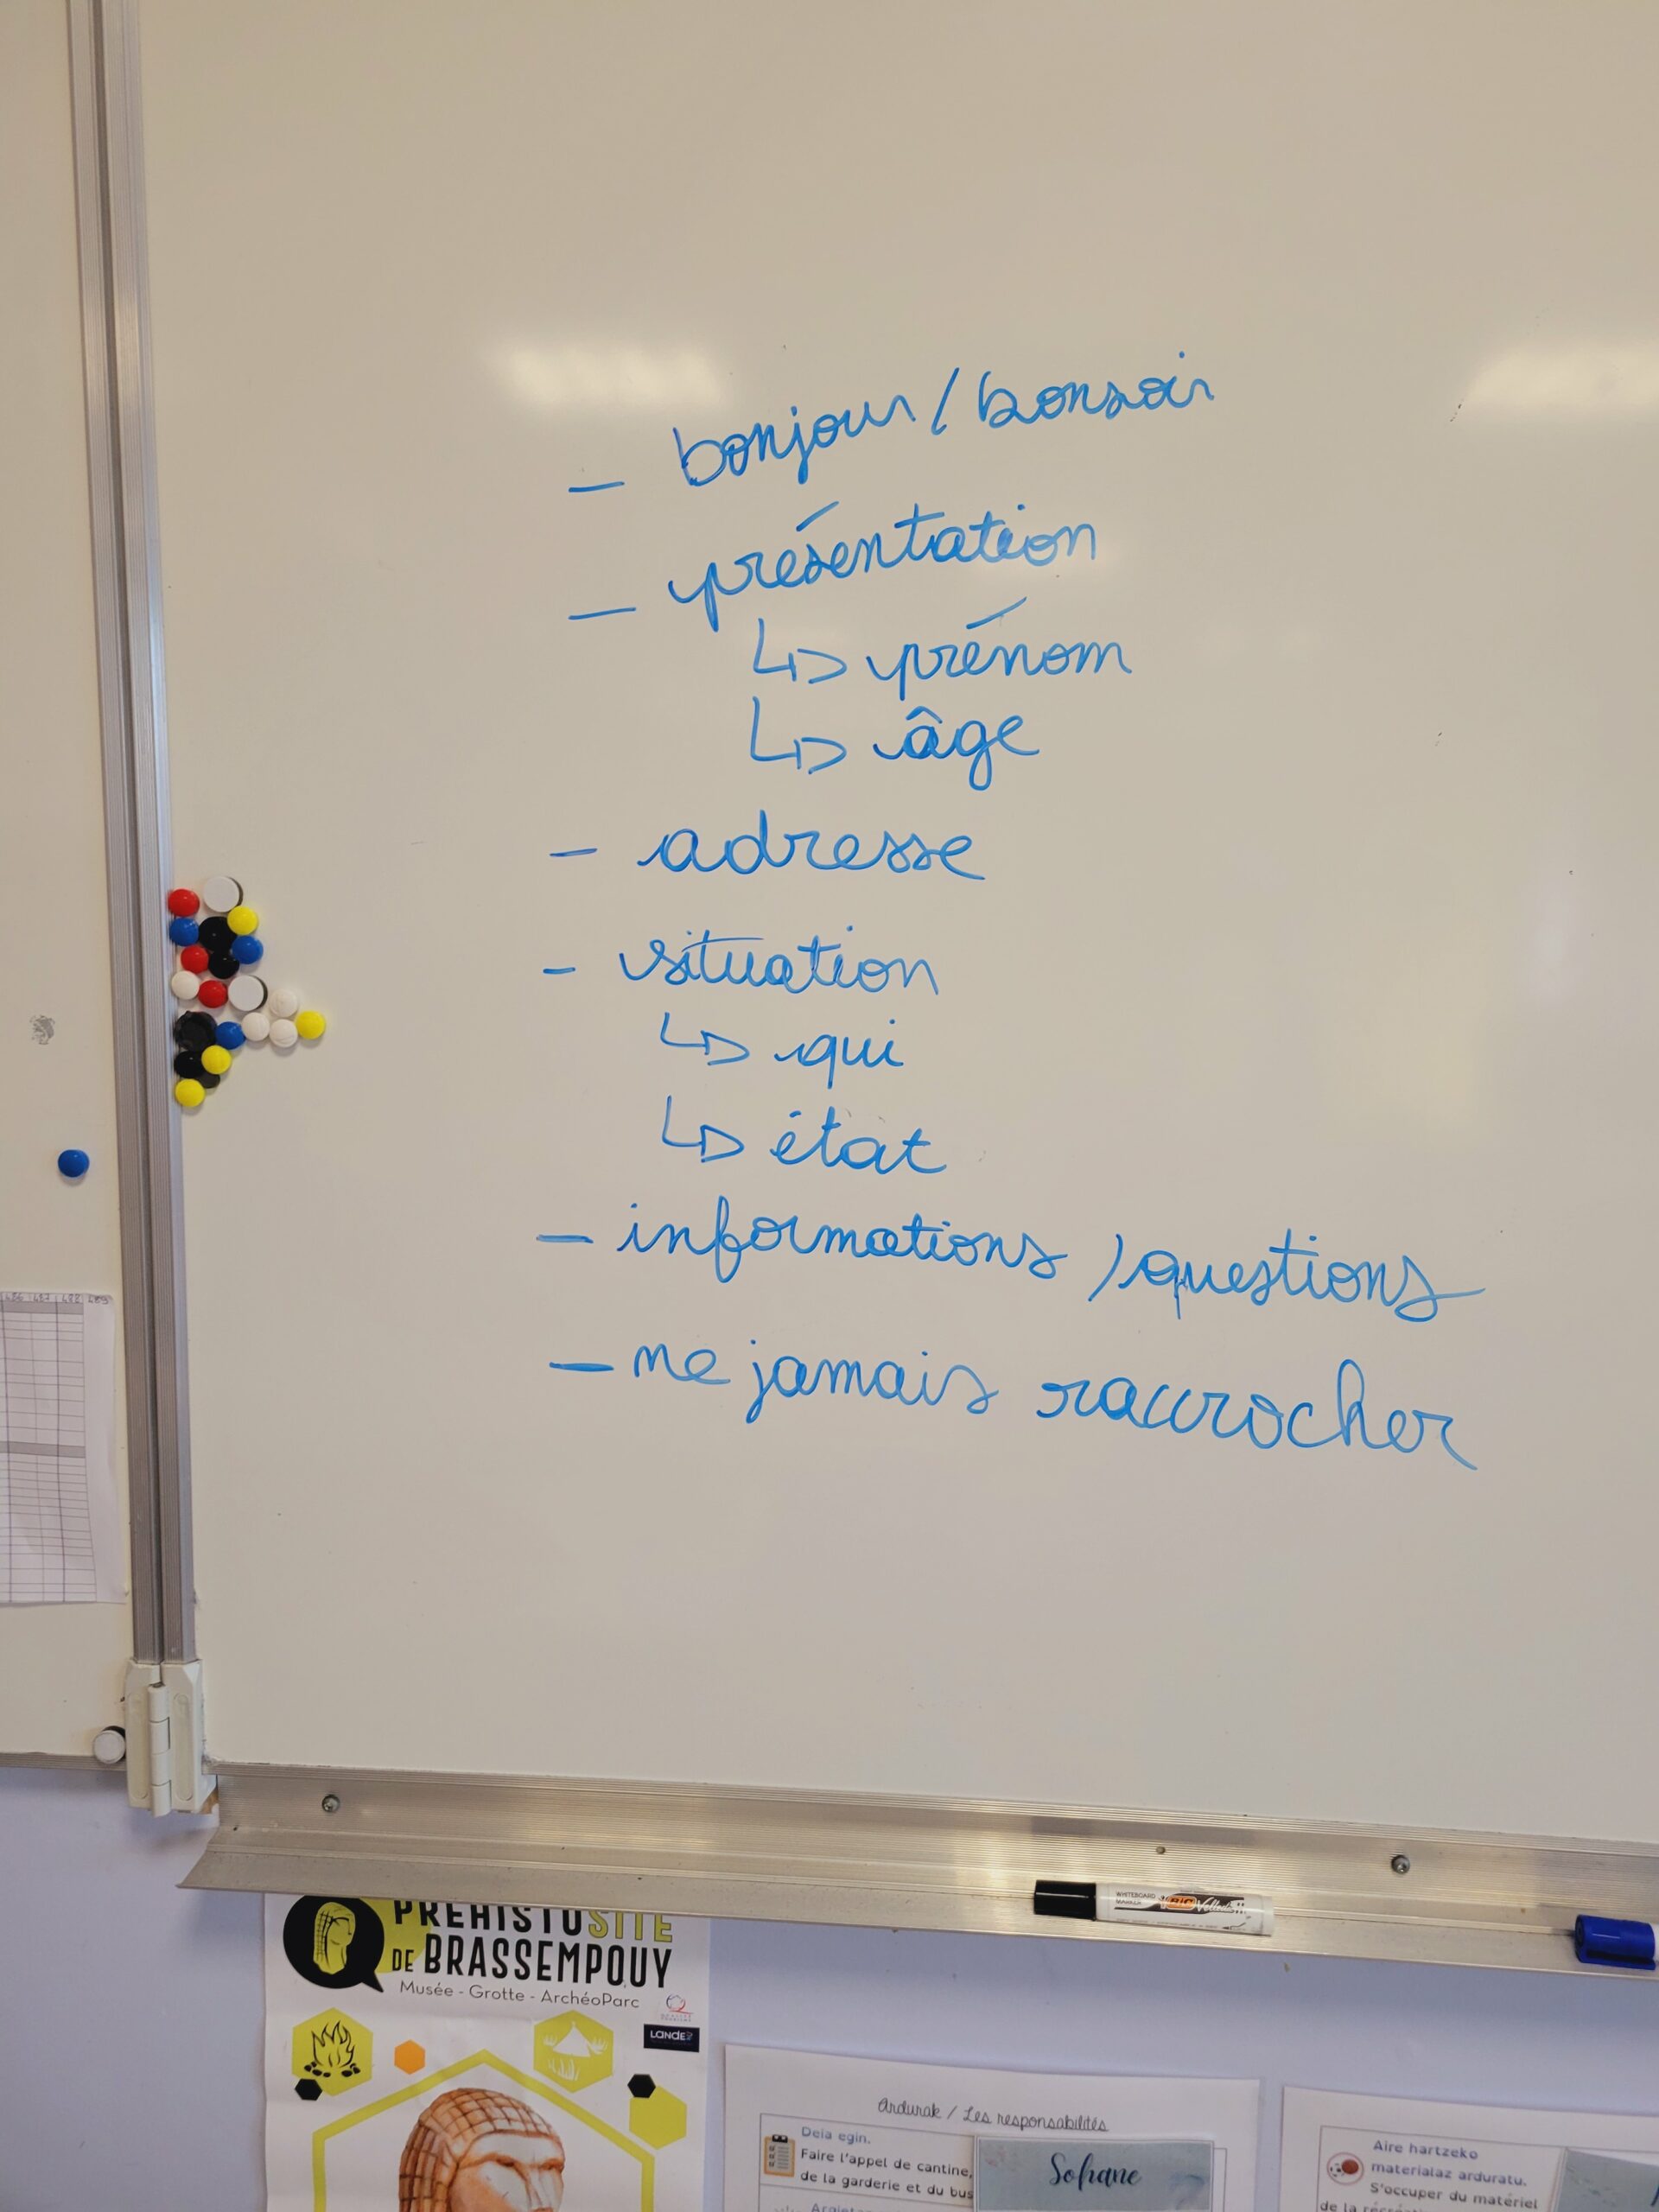 _ bonjour / bonsoir
_ présentation
↳ prénom
↳ âge
- adresse
- situation
↳ qui
↳ état
- informations / questions
- ne jamais raccrocher
486 487 488 489
WHITEBOARD MARKER BIC Velleda
PRÉHISTOSITE
DE BRASSEMPOUY
Musée - Grotte - ArchéoParc
LANDES
Ardurak / Les responsabilités
Deia egin.
Faire l'appel de cantine,
de la garderie et du bus
Sofiane
Aire hartzeko
materialaz arduratu.
S'occuper du matériel